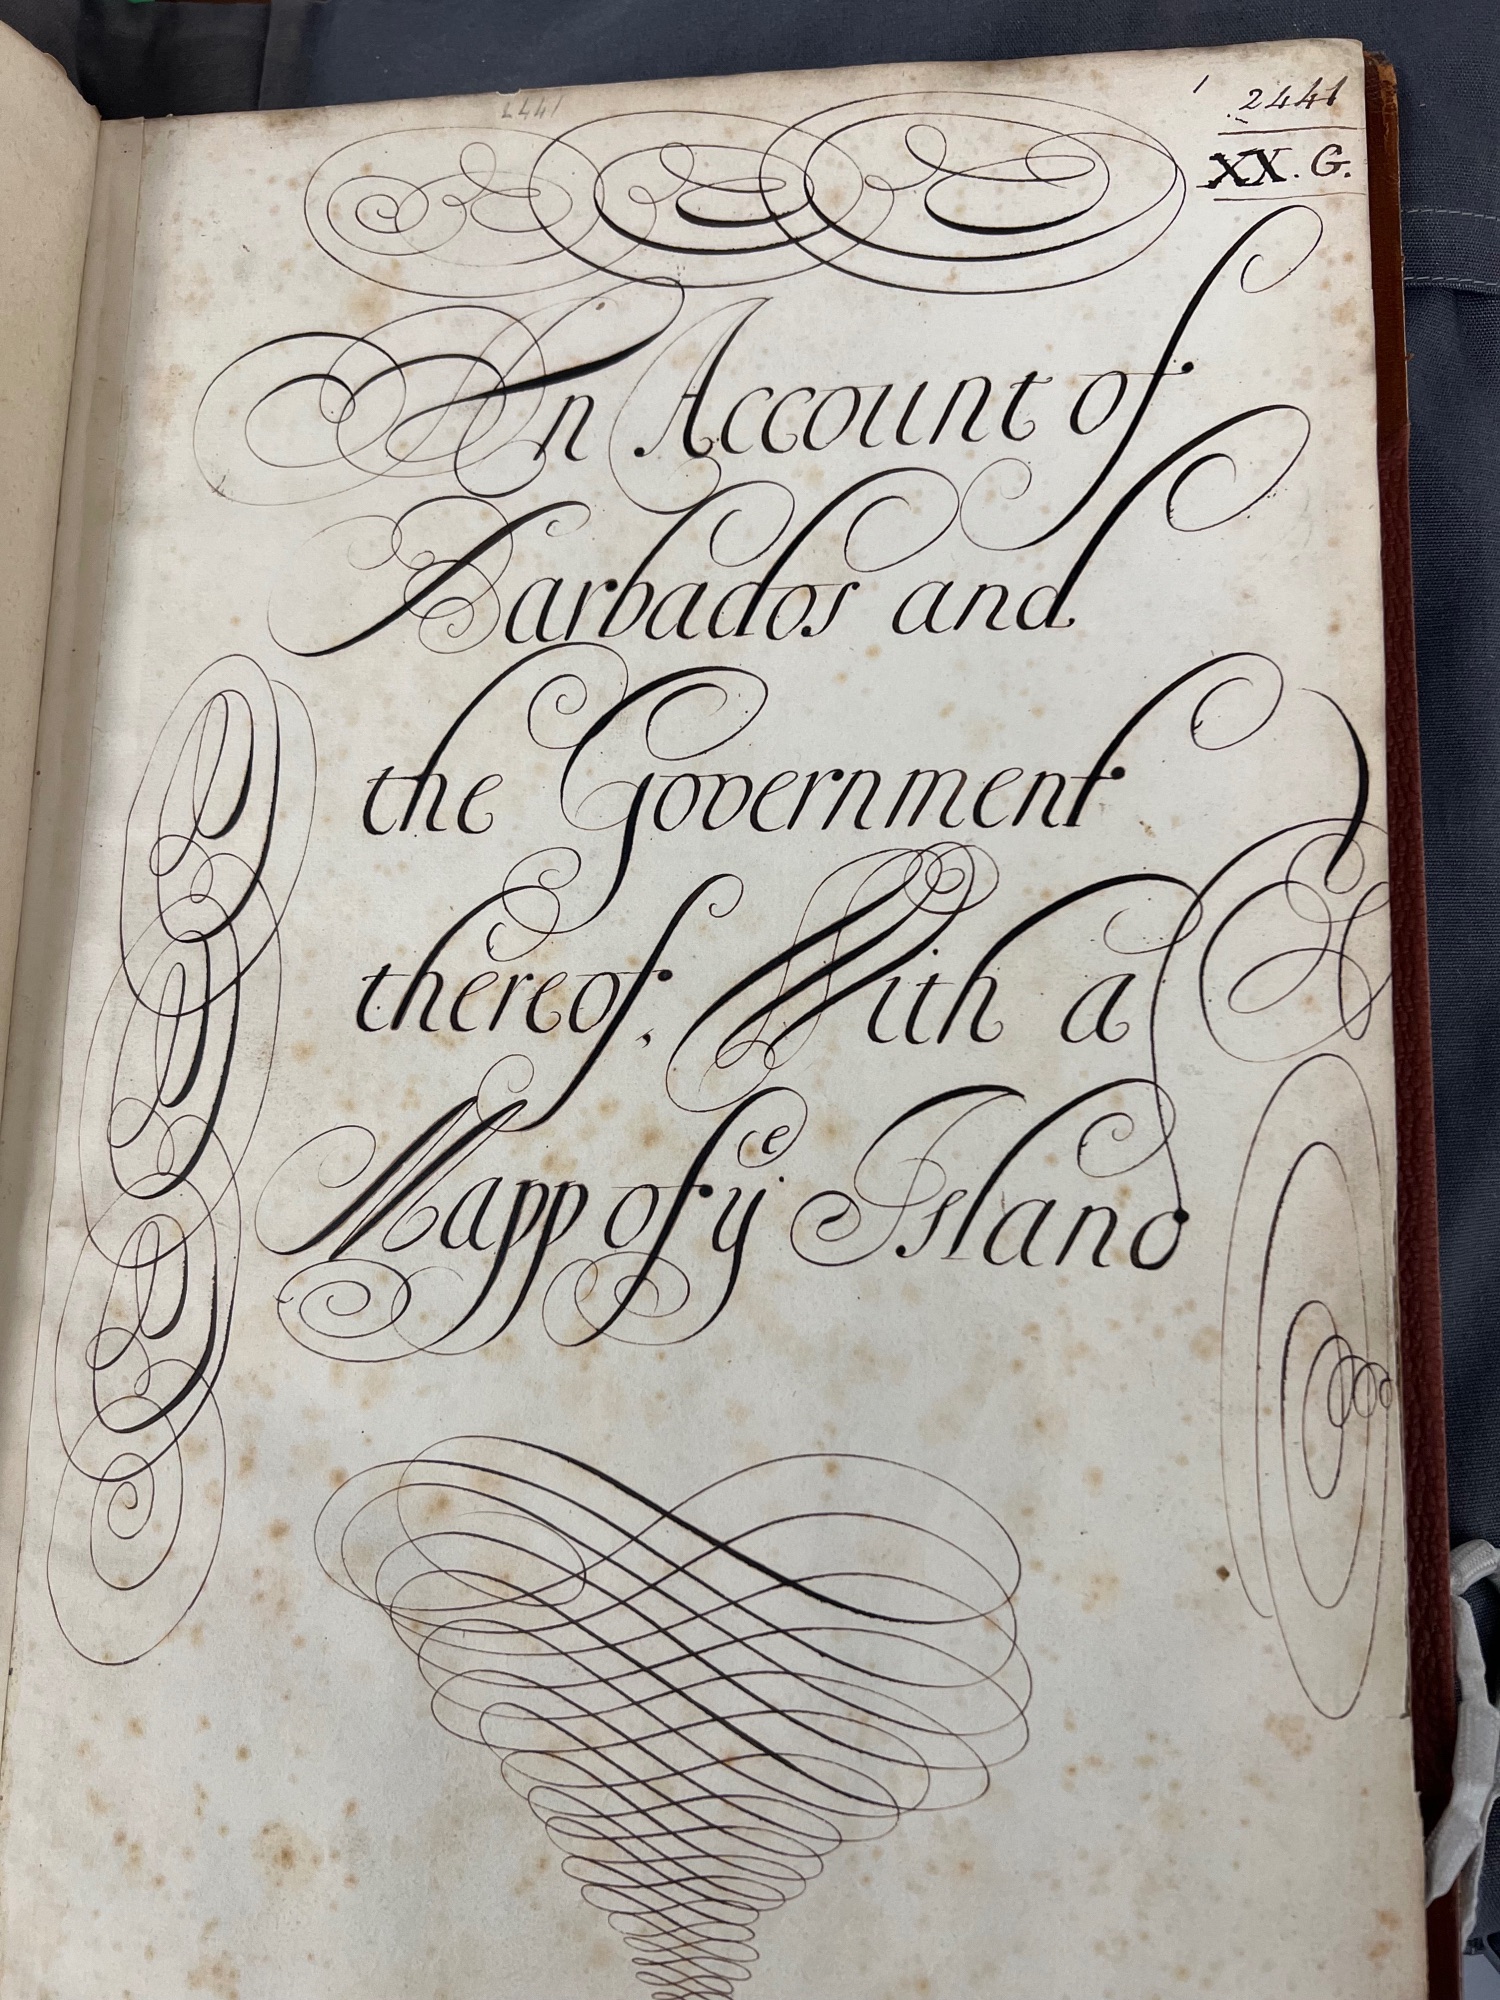 2441
1 2441
XX. G.
An Account of
Barbados and
the Government
thereof. With a
Mapp of yͤ Island